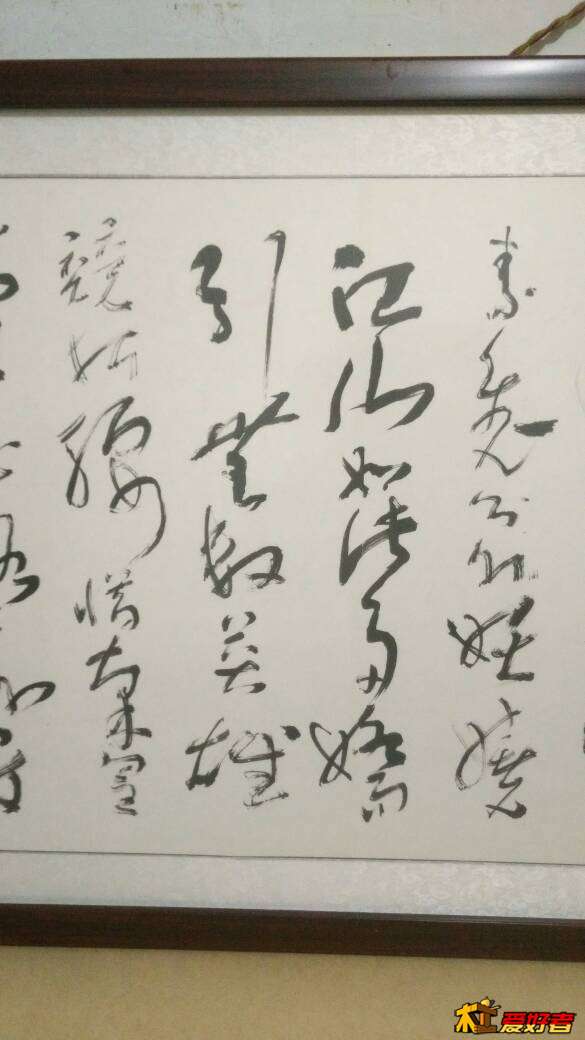 素裹分外妖嬈
江山如此多嬌
引無數英雄
競折腰惜秦皇
木工爱好者